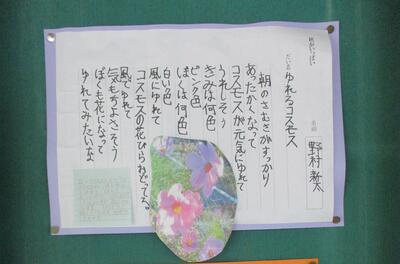 秋がいっぱい
だい名 ゆれるコスモス
名前 野村 新太
朝のさむさがすっかり
あったかくなって
コスモスが元気にゆれて
うれしそう
きみは何色
ピンク色
ぼくは何色
白い色
風にゆれて
コスモスの花びらおどってる
風にゆれて
気もちよさそう
ぼくも花になって
ゆれてみたいな